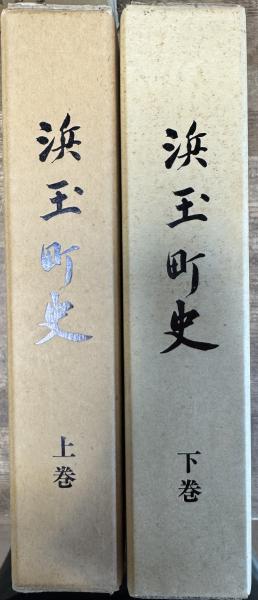 浜玉町史
上巻
浜玉町史
下巻